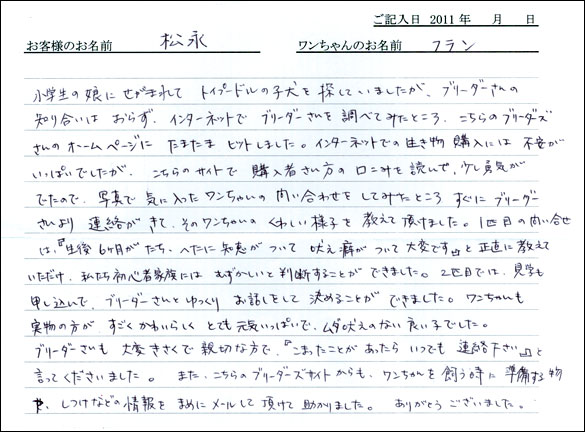 ご記入日 2011 年　月　日
お客様のお名前　松永　ワンちゃんのお名前　フラン
小学生の娘にせがまれて トイプードルの子犬を探していましたが、ブリーダーさんの
知り合いは おらず、インターネットで ブリーダーさんを調べてみたところ、こちらの ブリーダーズ
さんの ホームページに たまたま ヒットしました。インターネットでの生き物 購入には 不安が
いっぱいでしたが、こちらのサイトで 購入者さん方の 口コミを 読んで、少し勇気が
でたので、写真で 気に入った ワンちゃんの 問い合わせを してみたところ すぐに ブリーダー
さんより 連絡がきて、そのワンちゃんの くわしい様子を 教えて 頂けました。1匹目の問い合せ
は、『生後 6ヶ月がたち、へたに知恵がついて 吠え癖がついて大変です』と正直に教えて
いただけ、私たち初心者家族には むずかしいと判断することが できました。2匹目では、見学も
申し込んで、ブリーダーさんと ゆっくり お話しをして 決めることが できました。ワンちゃんも
実物の方が、すごく かわいらしく とても 元気いっぱいで、ムダ吠えのない 良い子でした。
ブリーダーさんも 大変 きさくで 親切な方で、『こまったことが あったら いつでも 連絡下さい』と
言ってくださいました。 また、こちらのブリーダーズサイトからも、ワンちゃんを 飼う時に 準備する物
や、しつけなどの 情報を まめにメールして 頂けて 助かりました。 ありがとう ございました。